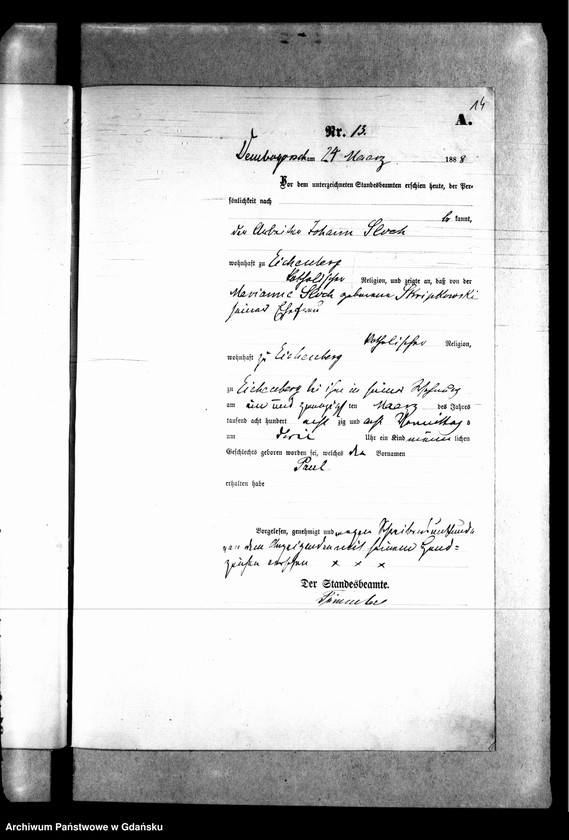 14
A.
Nr. 13.
am 24 Maarz 1888
Vor dem unterzeichneten Standesbeamten erschien heute, der Per-
sönlichkeit nach
kannt,
der Arbeiter Johann Sloch
wohnhaft zu Eichenberg
katholischer Religion, und zeigte an, daß von der
Marianne Sloch geborene Skripkowski
seiner Ehefrau
katholischer Religion,
wohnhaft zu Eichenberg
zu Eichenberg bei ihm in seiner Wohnung
am ein und zwanzigsten Maarz des Jahres
tausend acht hundert acht zig und acht Vormittags
um drei Uhr ein Kind männlichen
Geschlechts geboren worden sei, welches den Vornamen
Paul
erhalten habe
Vorgelesen, genehmigt und wegen Schreibensunkunde
von dem Anzeigenden mit seinem Hand-
zeichen versehen x x x
Der Standesbeamte.
Archiwum Państwowe w Gdańsku